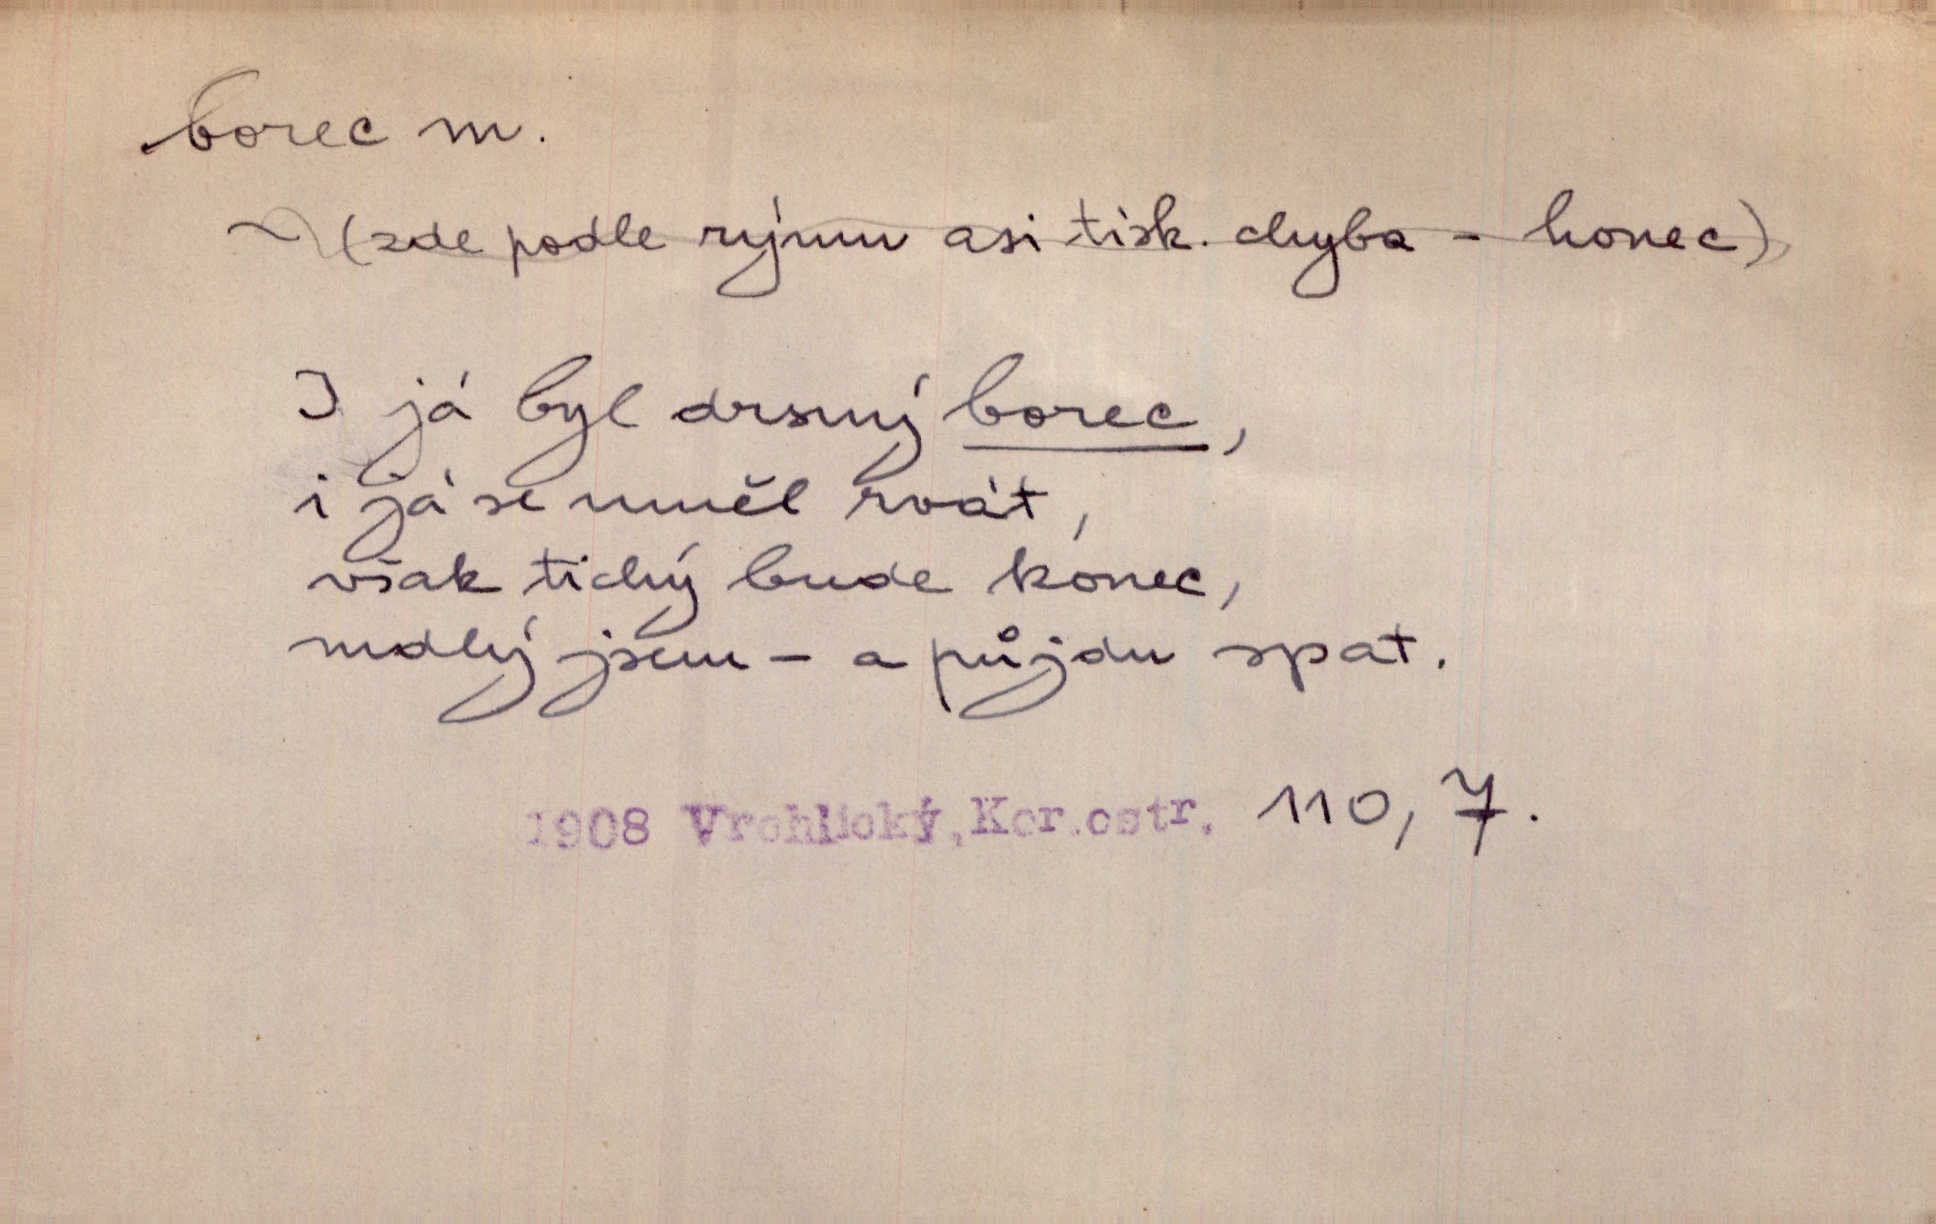 borec m.
~ (zde podle rýmu asi tisk. chyba - honec)
I já byl drsný borec,
i já se uměl rvát,
však tichý bude konec,
mdlý jsem - a půjdu spat.
1908 Vrchlický, Kor.ostr. 110, 7.